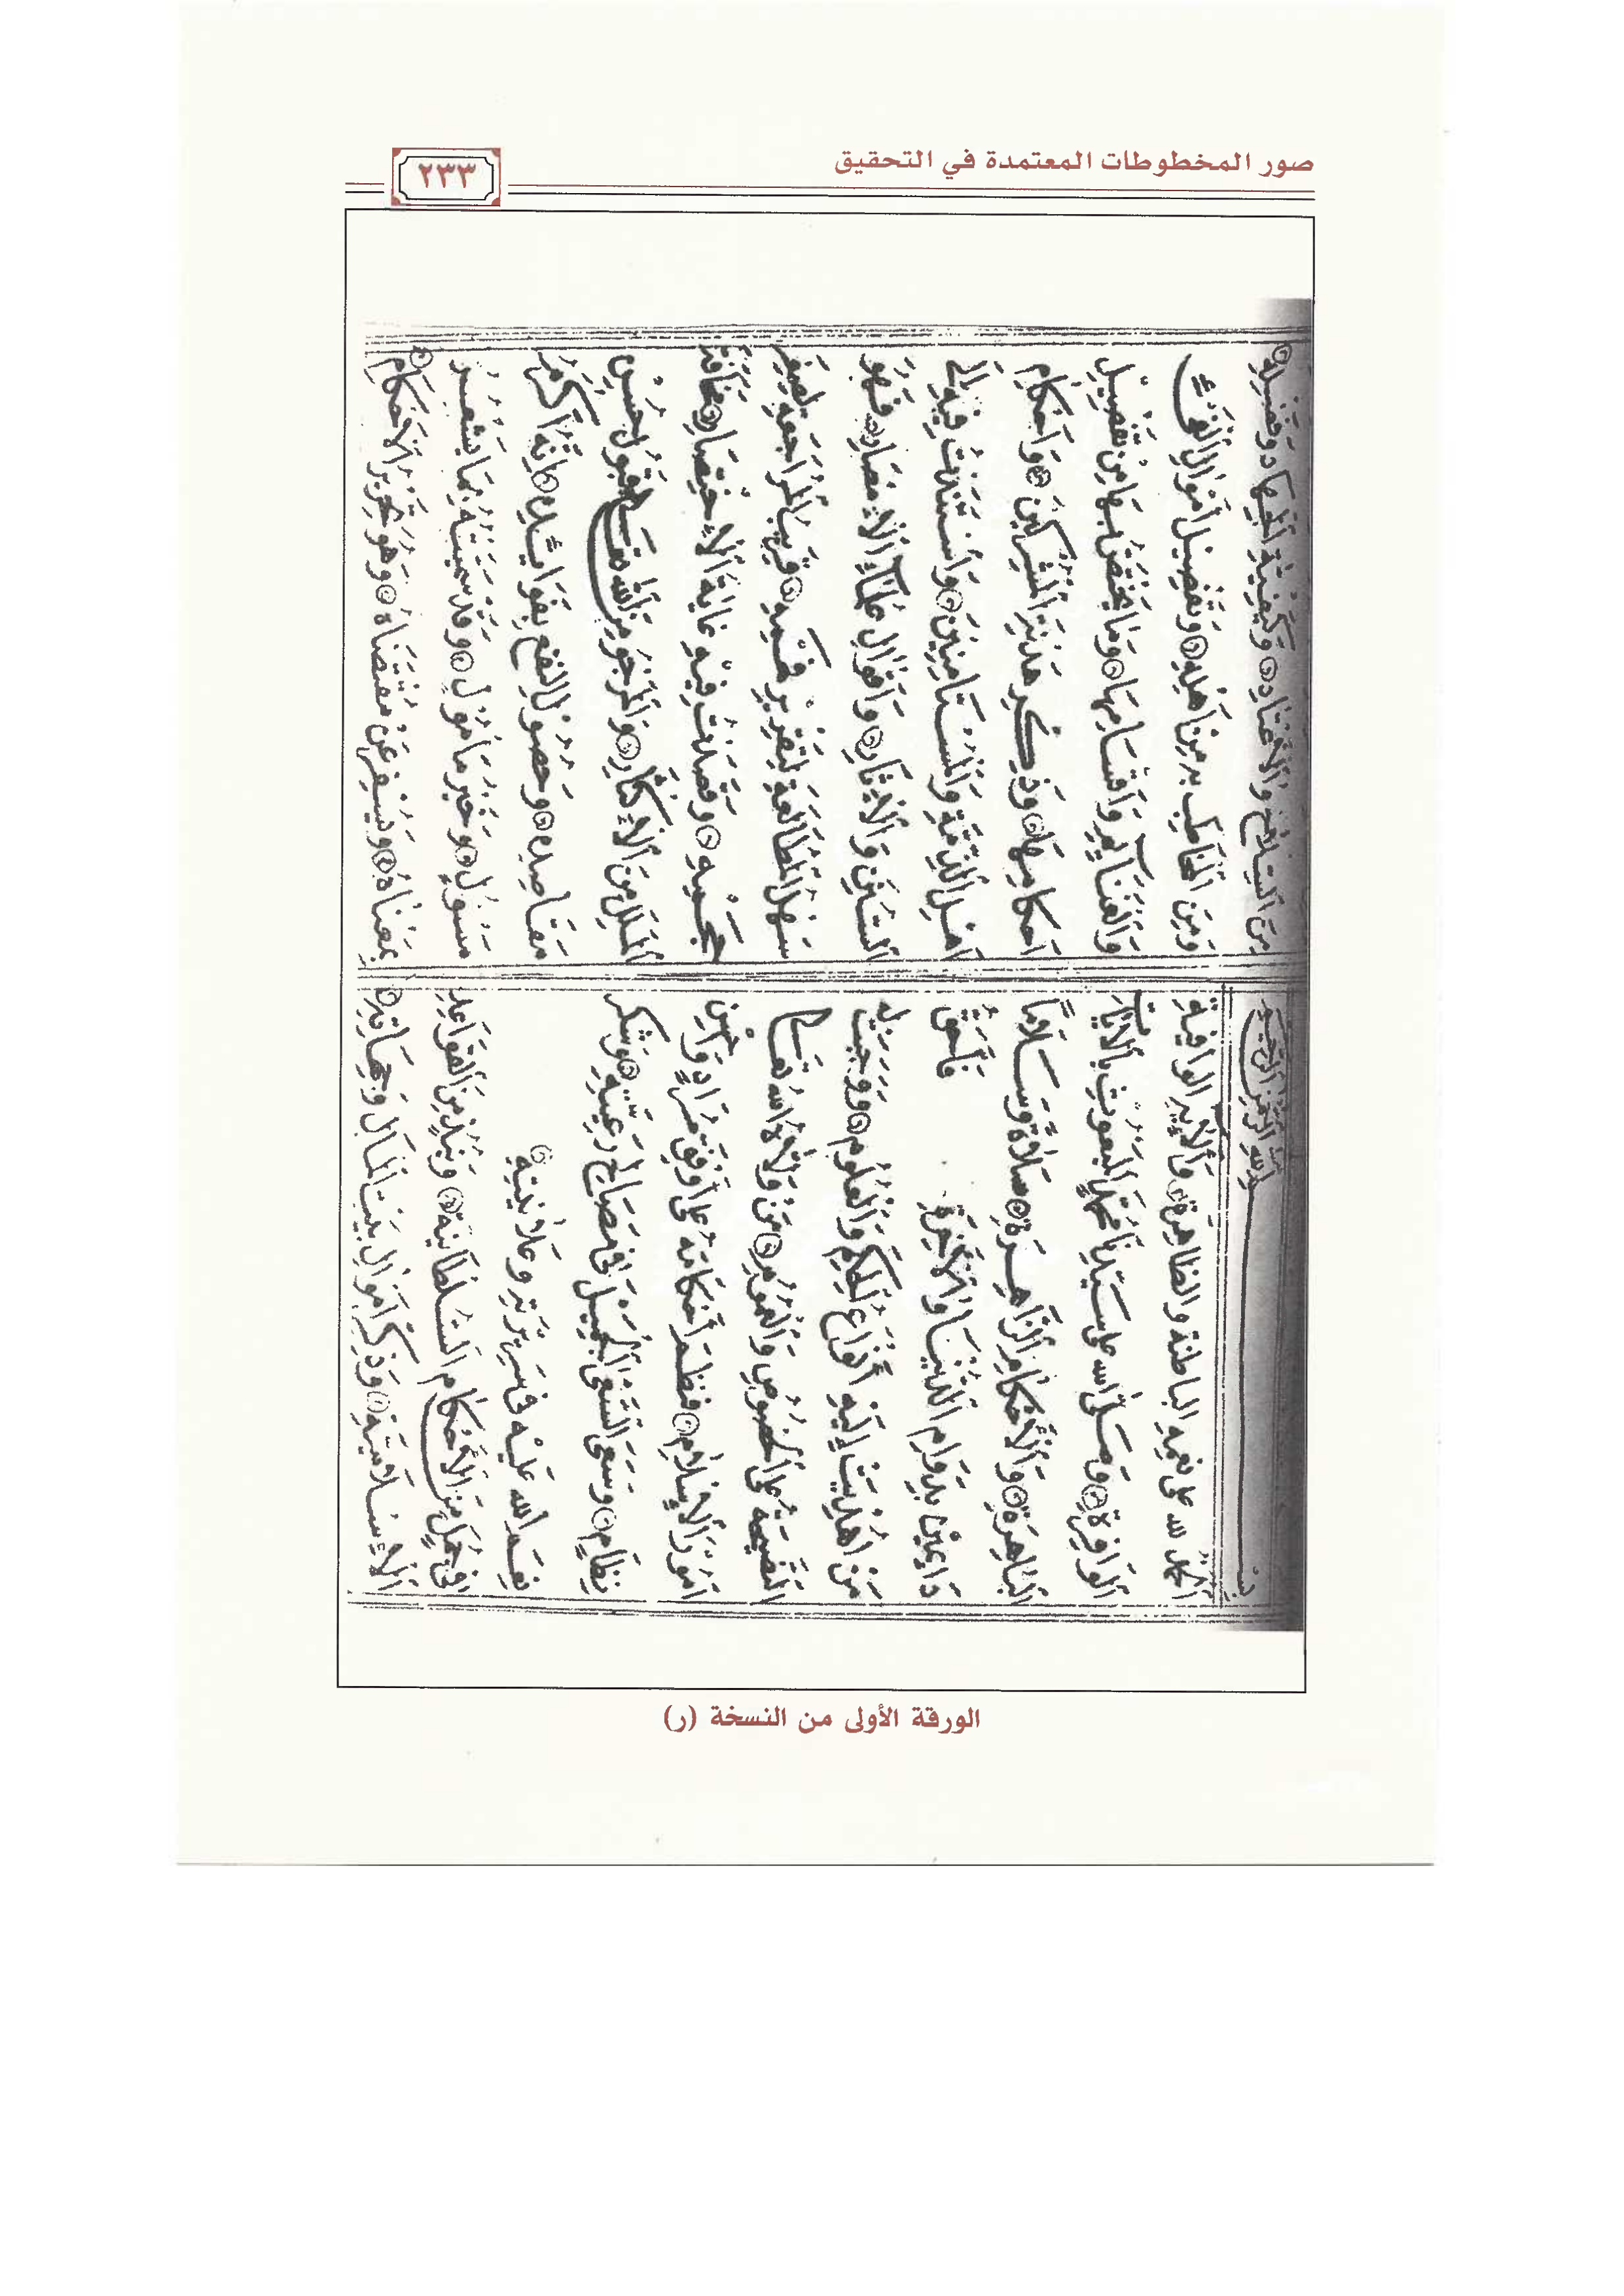 صور المخطوطات المعتمدة في التحقيق
٢٣٣
بسم الله الرحمن الرحيم
الحمد لله على نعمه الباطنة والظاهرة وآلائه الوافية
الوافرة وصلى الله على سيدنا محمد المبعوث بالآيات
الباهرة والأحكام الزاهرة صلاة وسلاما
دائمين بدوام الدنيا والآخرة فأحق
من أهديت إليه أنواع الحكم والعلوم ووجبت
النصيحة على الخصوص والعموم من ولاه الله تعالى
أمور الإسلام فنظم أحكامه على أوفق مراد وأحسن
نظام وسعى السعي الجميل في مصالح رعيته وشكر
نعم الله عليه في سريرته وعلانيته
في جمل من الأحكام السلطانية ونبذ من القواعد
الإسلامية وذكر أموال بيت المال وجهاته
من السلاح والأعتاد وكيفية الجهاد وفضله
ومن المخاطب به من أهله وتفصيل أموال الفيء
والغنائم وأقسامها وما يختص بها من تفصيل
أحكامها وذكر هدنة المشركين وأحكام
أهل الذمة والمستأمنين واستندت فيه إلى
السنن والآثار وأقوال علماء الأمصار فهو
سهل المطالعة لتقرير فهمه قريب المراجعة لصغر
حجمه وقصدت فيه غاية الاختصار مخافة
الملل من الإكثار والمرجو من الله تعالى لمقبول حسن
مقاصده وحصول النفع بفوائده إنه أكرم
مسؤول وخير مأمول وقد سميته بما يشعر
بمعناه ويسفر عن مقتضاه وهو تحرير الأحكام
الورقة الأولى من النسخة (ر)